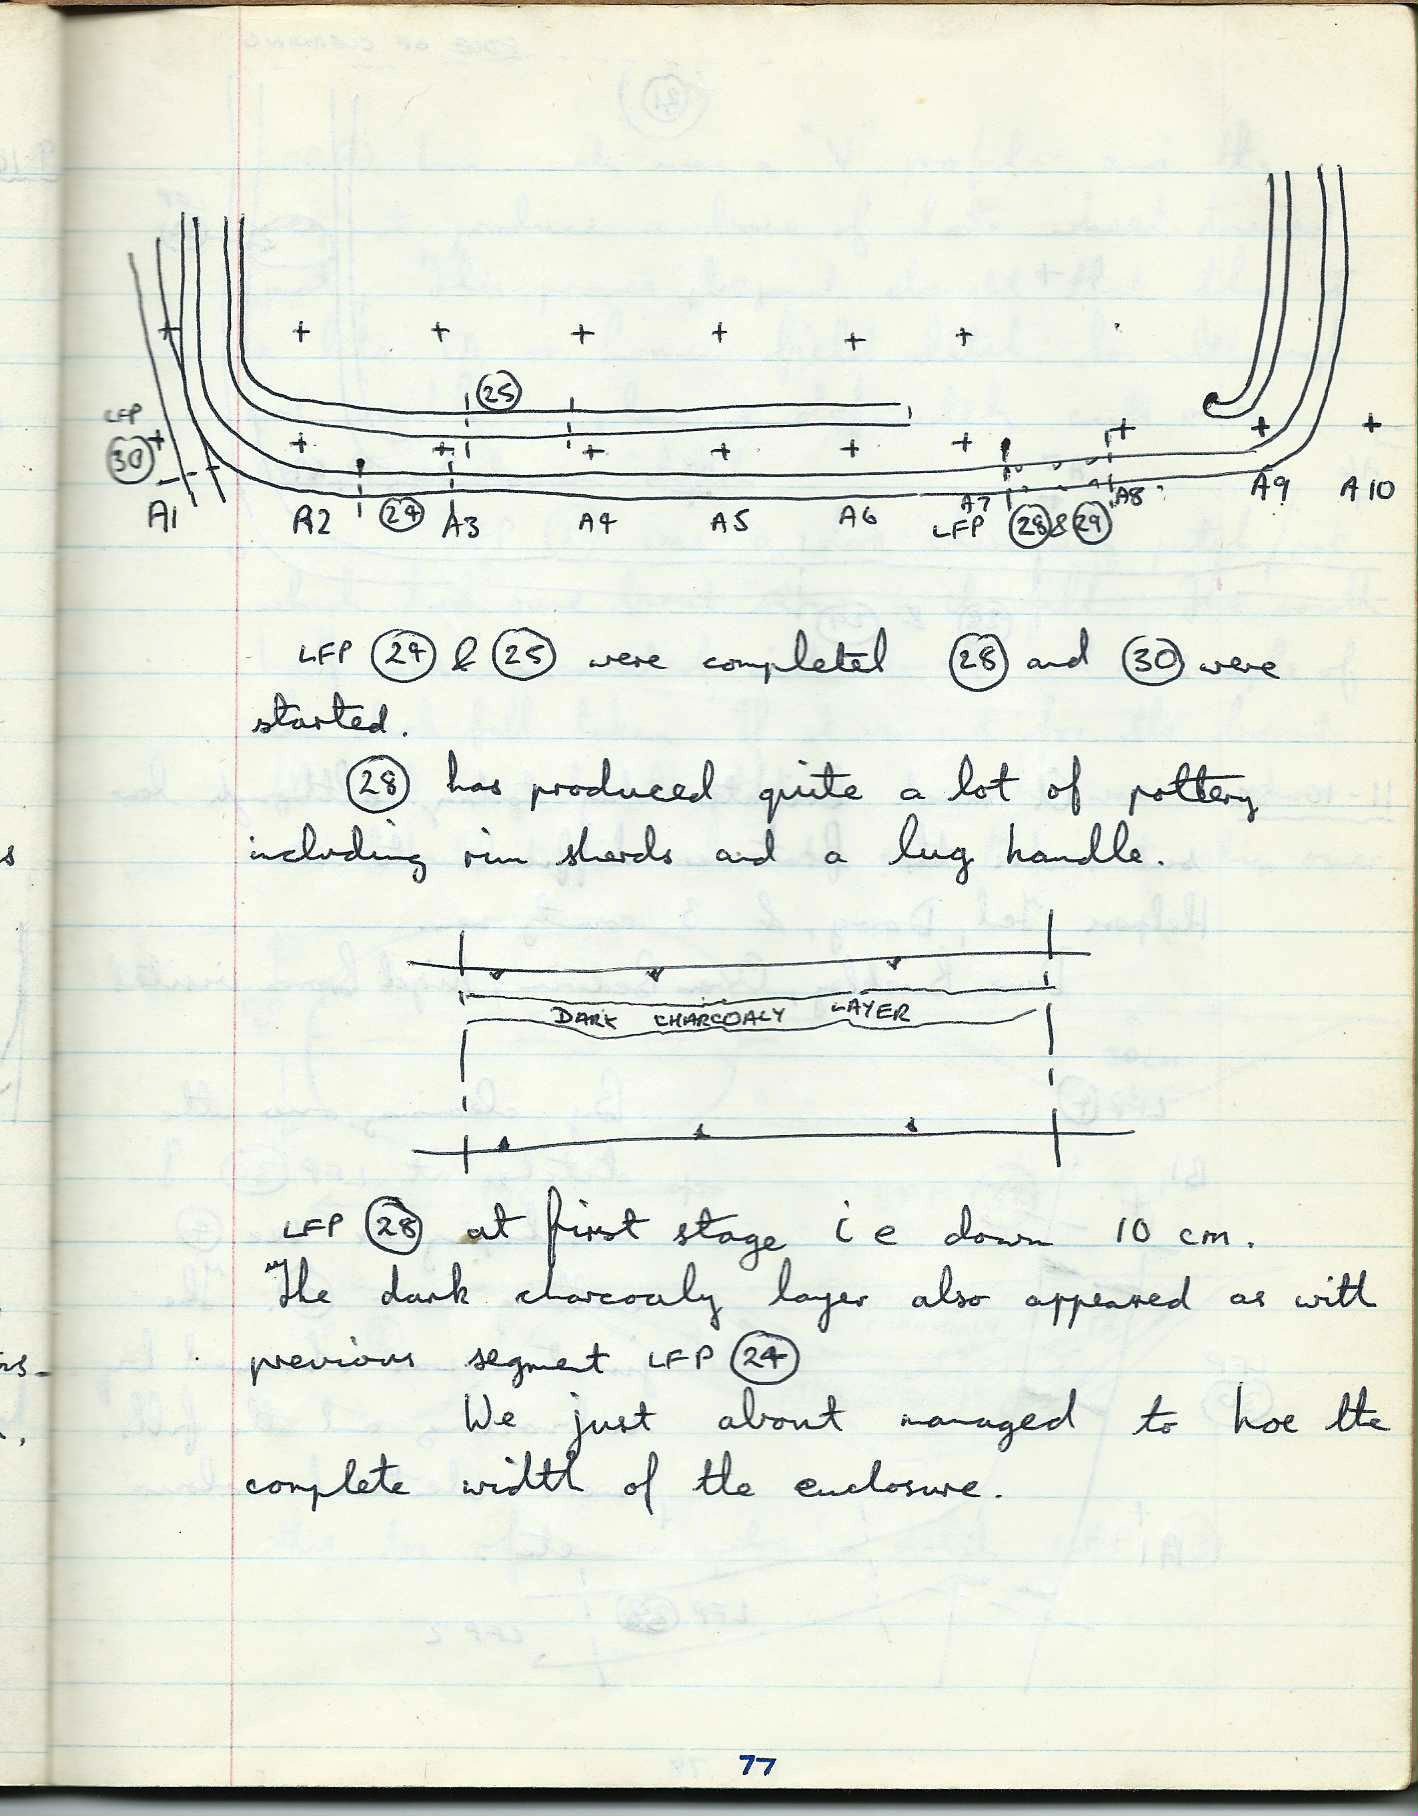 25
LFP
30
A1 A2 24 A3 A4 A5 A6 A7 A8 A9 A10
LFP 28 & 29
LFP 24 & 25 were completed 28 and 30 were
started.
28 has produced quite a lot of pottery
including rim sherds and a lug handle.
DARK CHARCOALY LAYER
LFP 28 at first stage i e down 10 cm.
The dark charcoaly layer also appeared as with
previous segment LFP 24
We just about managed to hoe the
complete width of the enclosure.
77